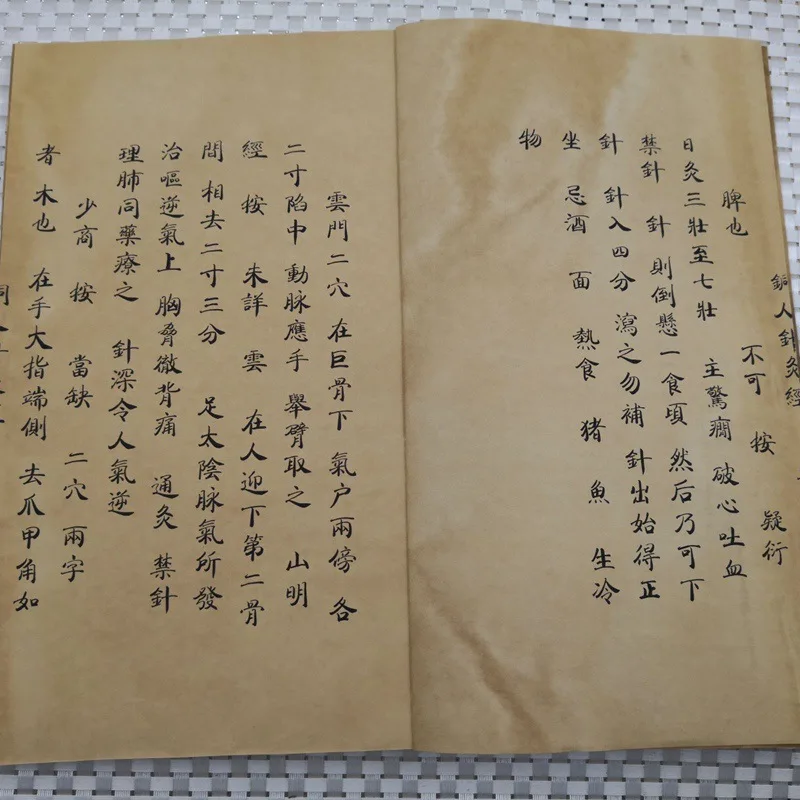 銅人針灸經
脾也 不可 按 疑衍
日灸三壯至七壯 主驚癇 破心吐血
禁針 針 則倒懸一食頃 然后乃可下
針 針入四分 瀉之勿補 針出始得正
坐 忌酒 面 熱食 猪 魚 生冷
物
雲門二穴 在巨骨下 氣户兩傍 各
二寸陷中 動脉應手 舉臂取之 山明
經 按 未詳 雲 在人迎下第二骨
間 相去二寸三分 足太陰脉氣所發
治嘔逆氣上 胸脅徹背痛 通灸 禁針
理肺同藥療之 針深令人氣逆
少商 按 當缺 二穴兩字
者 木也 在手大指端側 去爪甲角如